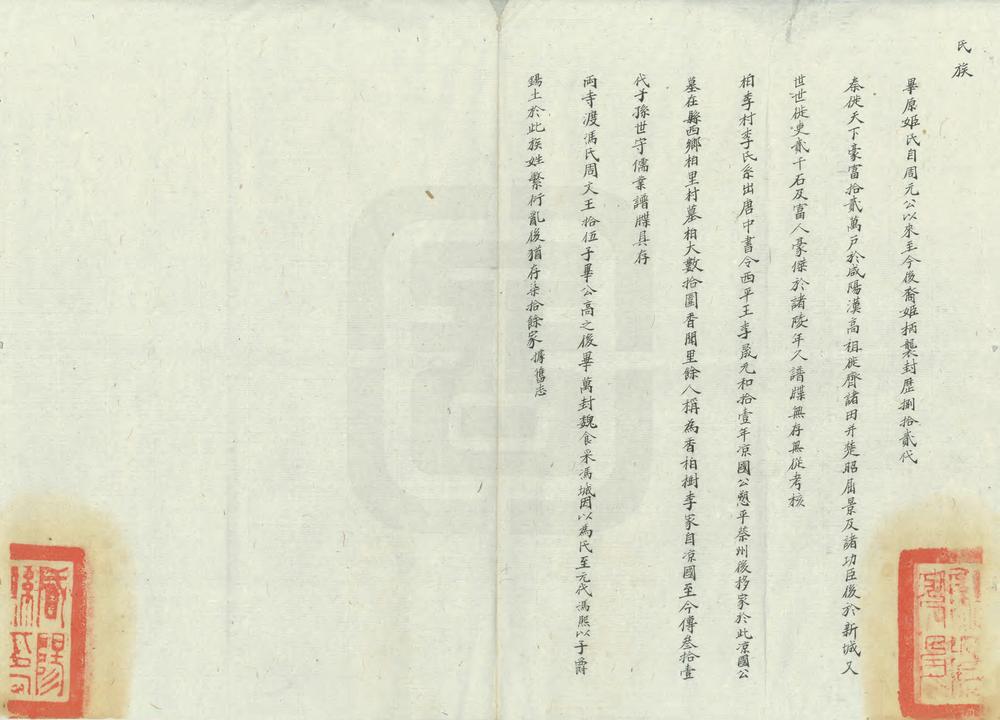 氏族
畢原姬氏自周元公以來至今後裔姬柄襲封歷捌拾貳代
秦徙天下豪富拾貳萬戶於咸陽漢高祖徙齊諸田并楚昭屈景及諸功臣後於新城又
世世徙吏貳千石及富人豪傑於諸陵年久譜牒無存無從考核
柏李村李氏系出唐中書令西平王李晟元和拾壹年凉國公愬平蔡州後移家於此凉國公
墓在縣西鄉柏里村墓柏大數拾圍香聞里餘人稱為香柏樹李家自凉國至今傳叁拾壹
代子孫世守儒業譜牒具存
兩寺渡馮氏周文王拾伍子畢公高之後畢萬封魏食采馮城因以為氏至元代馮熙以子爵
錫土於此族姓繁衍亂後猶存柒拾餘家據舊志
咸陽縣印